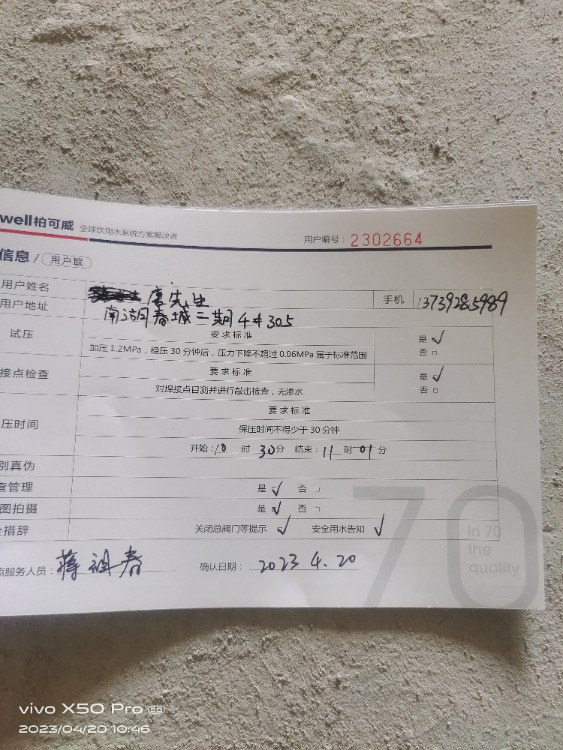 well柏可威 全球饮用水系统方案解决者 用户编号：2302664
信息 / 用户联
用户姓名 唐先生 手机 13739285989
用户地址 南湖春城二期4#305
试压 要求标准 是 √
加压1.2MPa，稳压30分钟后，压力下降不超过0.06MPa属于标准范围 否 □
接点检查 要求标准 是 √
对焊接点目测并进行敲击检查，无渗水 否 □
压时间 要求标准
保压时间不得少于30分钟
开始：10 时 30 分 结束：11 时 01 分
别真伪
查管理 是 √ 否 □
图拍摄 是 √ 否 □
措辞 关闭总阀门等提示 √ 安全用水告知 √
点服务人员： 蒋 春 确认日期： 2023 4.20
70
In 70
the
quality
vivo X50 Pro 5G
2023/04/20 10:46